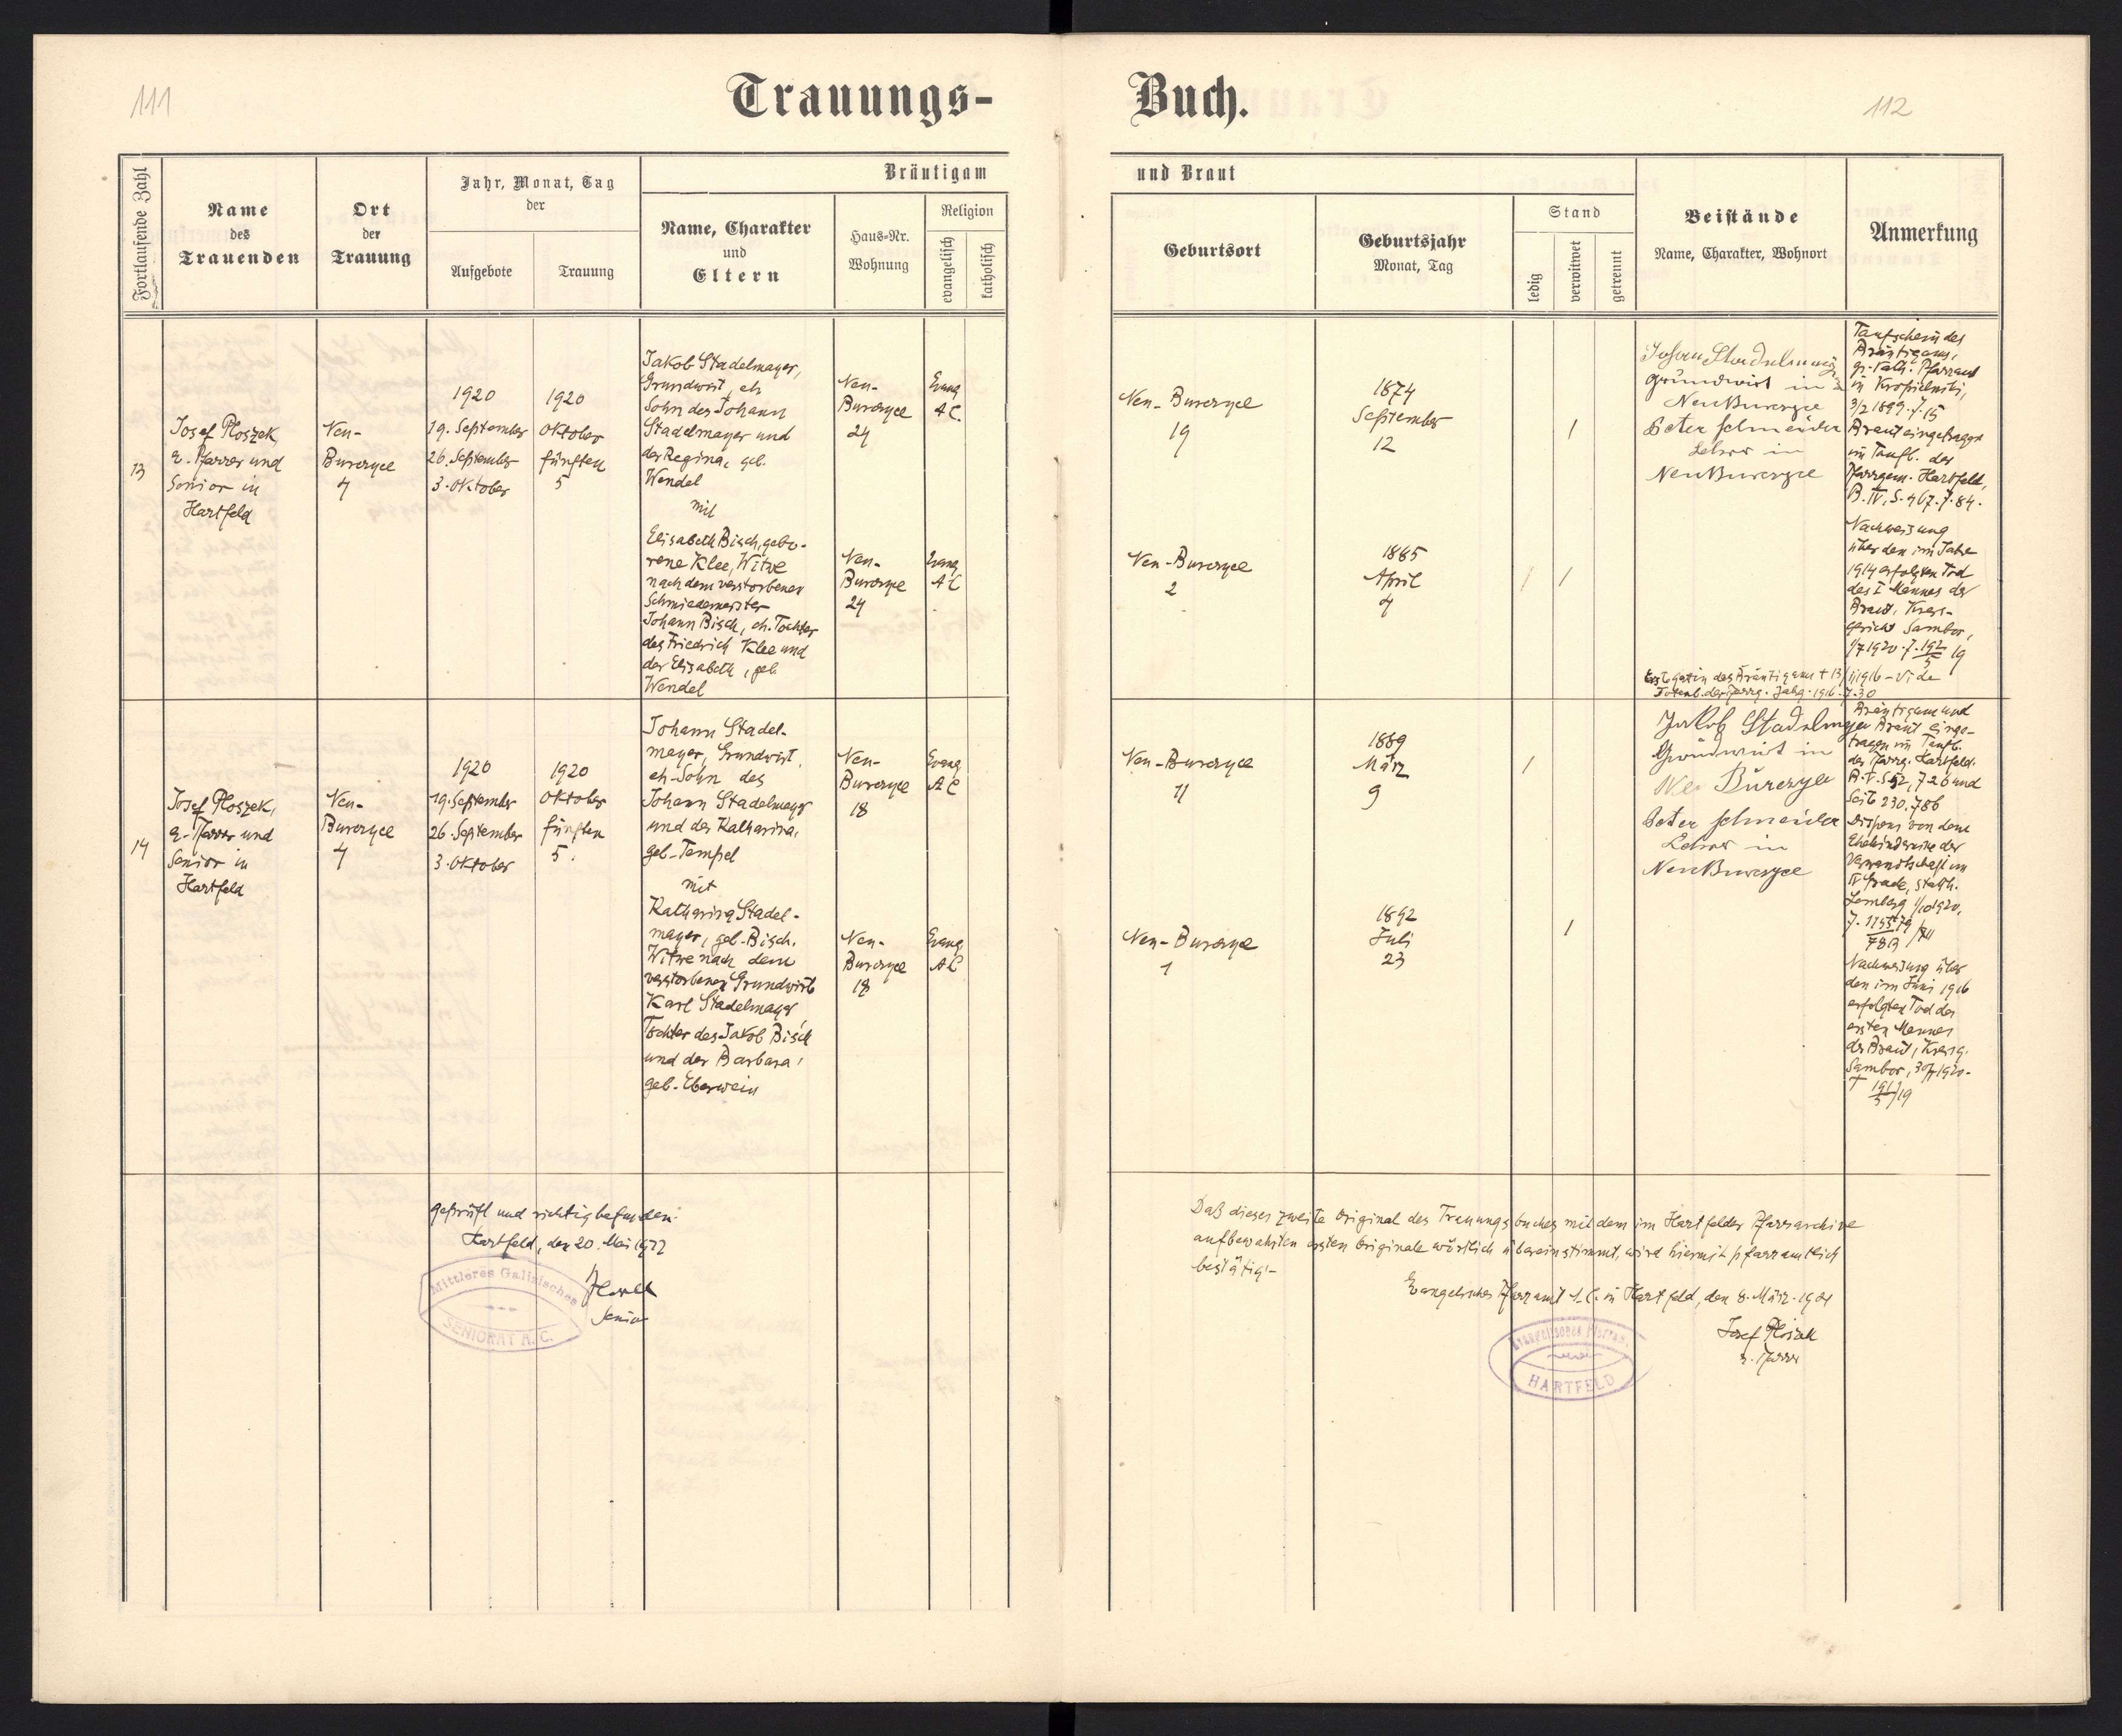 111
Trauungs-
Buch.
112
Fortlaufende Zahl
Name
des
Trauenden
Ort
der
Trauung
Jahr, Monat, Tag
der
Aufgebote
Trauung
Bräutigam
Name, Charakter
und
Eltern
Haus-Nr.
Wohnung
Religion
evangelisch
katholisch
und Braut
Geburtsort
Geburtsjahr
Monat, Tag
Stand
ledig
verwitwet
getrennt
Beistände
Name, Charakter, Wohnort
Anmerkung
13
Josef Ploszek,
e. Pfarrer und
Senior in
Hartfeld
Neu-
Burczyce
4
1920
19. September
26. September
3. Oktober
1920
Oktober
fünften
5
Jakob Stadelmayer,
Grundwirt, eh
Sohn des Johann
Stadelmayer und
der Regina, geb.
Wendel
mit
Elisabeth Bisch, gebo-
rene Klee, Witwe
nach dem verstorbenen
Schmiedemeister
Johann Bisch, eh. Tochter
des Friedrich Klee und
der Elisabeth, geb.
Wendel
Neu-
Burczyce
24
Evang
A C
Neu-
Burczyce
24
Evang
A C
Neu-Burczyce
19
1874
September
12
Neu-Burczyce
2
1885
April
4
Johann Stadelmayer
Grundwirt in
Neu Burczyce
Peter Schneider
Lehrer in
Neu Burczyce
Taufschein des
Bräutigams,
gr. kath. Pfarramt
in
3/2 1899. 7. 15
Braut eingetragen
im Taufb. der
Pfarrgem. Hartfeld,
B. IV, S. 467. 7. 84.
Nachweisung
über den im Jahre
1914 erfolgten Tod
des I Mannes der
Braut, Kreis-
gericht Sambor,
1/7 1920. 7. 192/5 19
Erste Gatin des Bräutigams + 13/ii 1916 - vide
Totenb. der Pfarrg. Jahrg. 1916. 7. 30
14
Josef Ploszek,
e. Pfarrer und
Senior in
Hartfeld
Neu-
Burczyce
4
1920
19. September
26. September
3. Oktober
1920
Oktober
fünften
5.
Johann Stadel-
mayer, Grundwirt,
eh-Sohn des
Johann Stadelmayer
und der Katharina,
geb. Tempel
mit
Katharina Stadel-
mayer, geb. Bisch,
Witwe nach dem
verstorbenen Grundwirt
Karl Stadelmayer,
Tochter des Jakob Bisch
und der Barbara,
geb. Eberwein
Neu-
Burczyce
18
Evang
A C
Neu-
Burczyce
18
Evang
A C
Neu-Burczyce
11
1889
März
9
Neu-Burczyce
1
1892
Juli
23
Jakob Stadelmayer
Grundwirt in
Neu Burczyce
Peter Schneider
Lehrer in
Neu Burczyce
Bräutigam und
Braut einge-
tragen im Taufb.
der Pfarrg. Hartfeld.
B. V. S 52, 7 26 und
Seite 230. 786
Dispens von dem
Ehehindernisse der
Verwandtschaft im
IV Grade, Statth.
Lemberg 1/10 1920,
Nachweisung über
den im Juni 1916
erfolgten Tod des
ersten Mannes
der Braut, Kreisg.
Sambor, 1920.
geprüft und richtig befunden.
Hartfeld, den 20. Mai 1922
Senior
Mittleres Galizisches
SENIORAT A. C.
Daß dieses zweite Original des Trauungsbuches mit dem im Hartfelder Pfarrarchive
aufbewahrten ersten Originale wörtlich übereinstimmt, wird hiermit pfarramtlich
bestätigt
Evangelisches Pfarramt A. C. in Hartfeld, den 8. März 1921
Josef Ploszek
e. Pfarrer
Evangelisches Pfarramt
HARTFELD